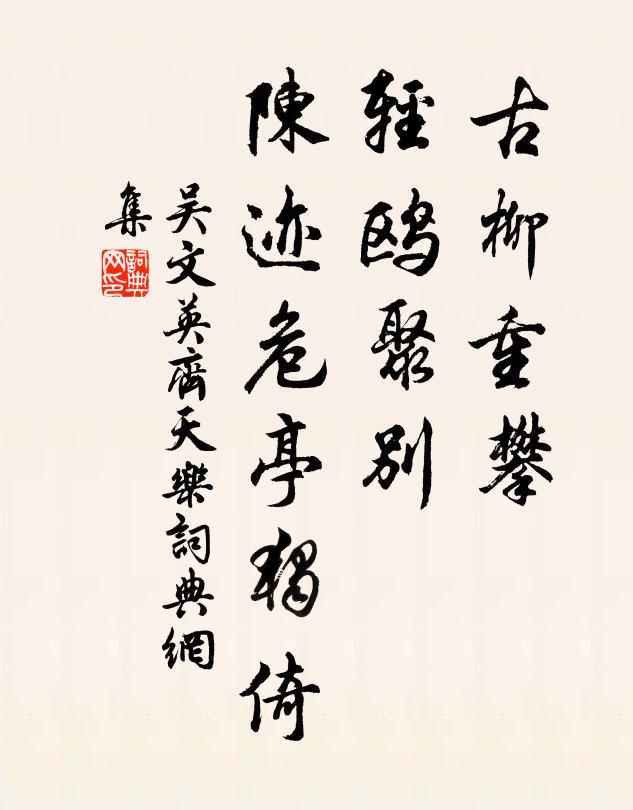 古柳重攀
輕鷗聚别
陳迹危亭獨倚
吴文英齊天樂詞典網
集
詞典网印